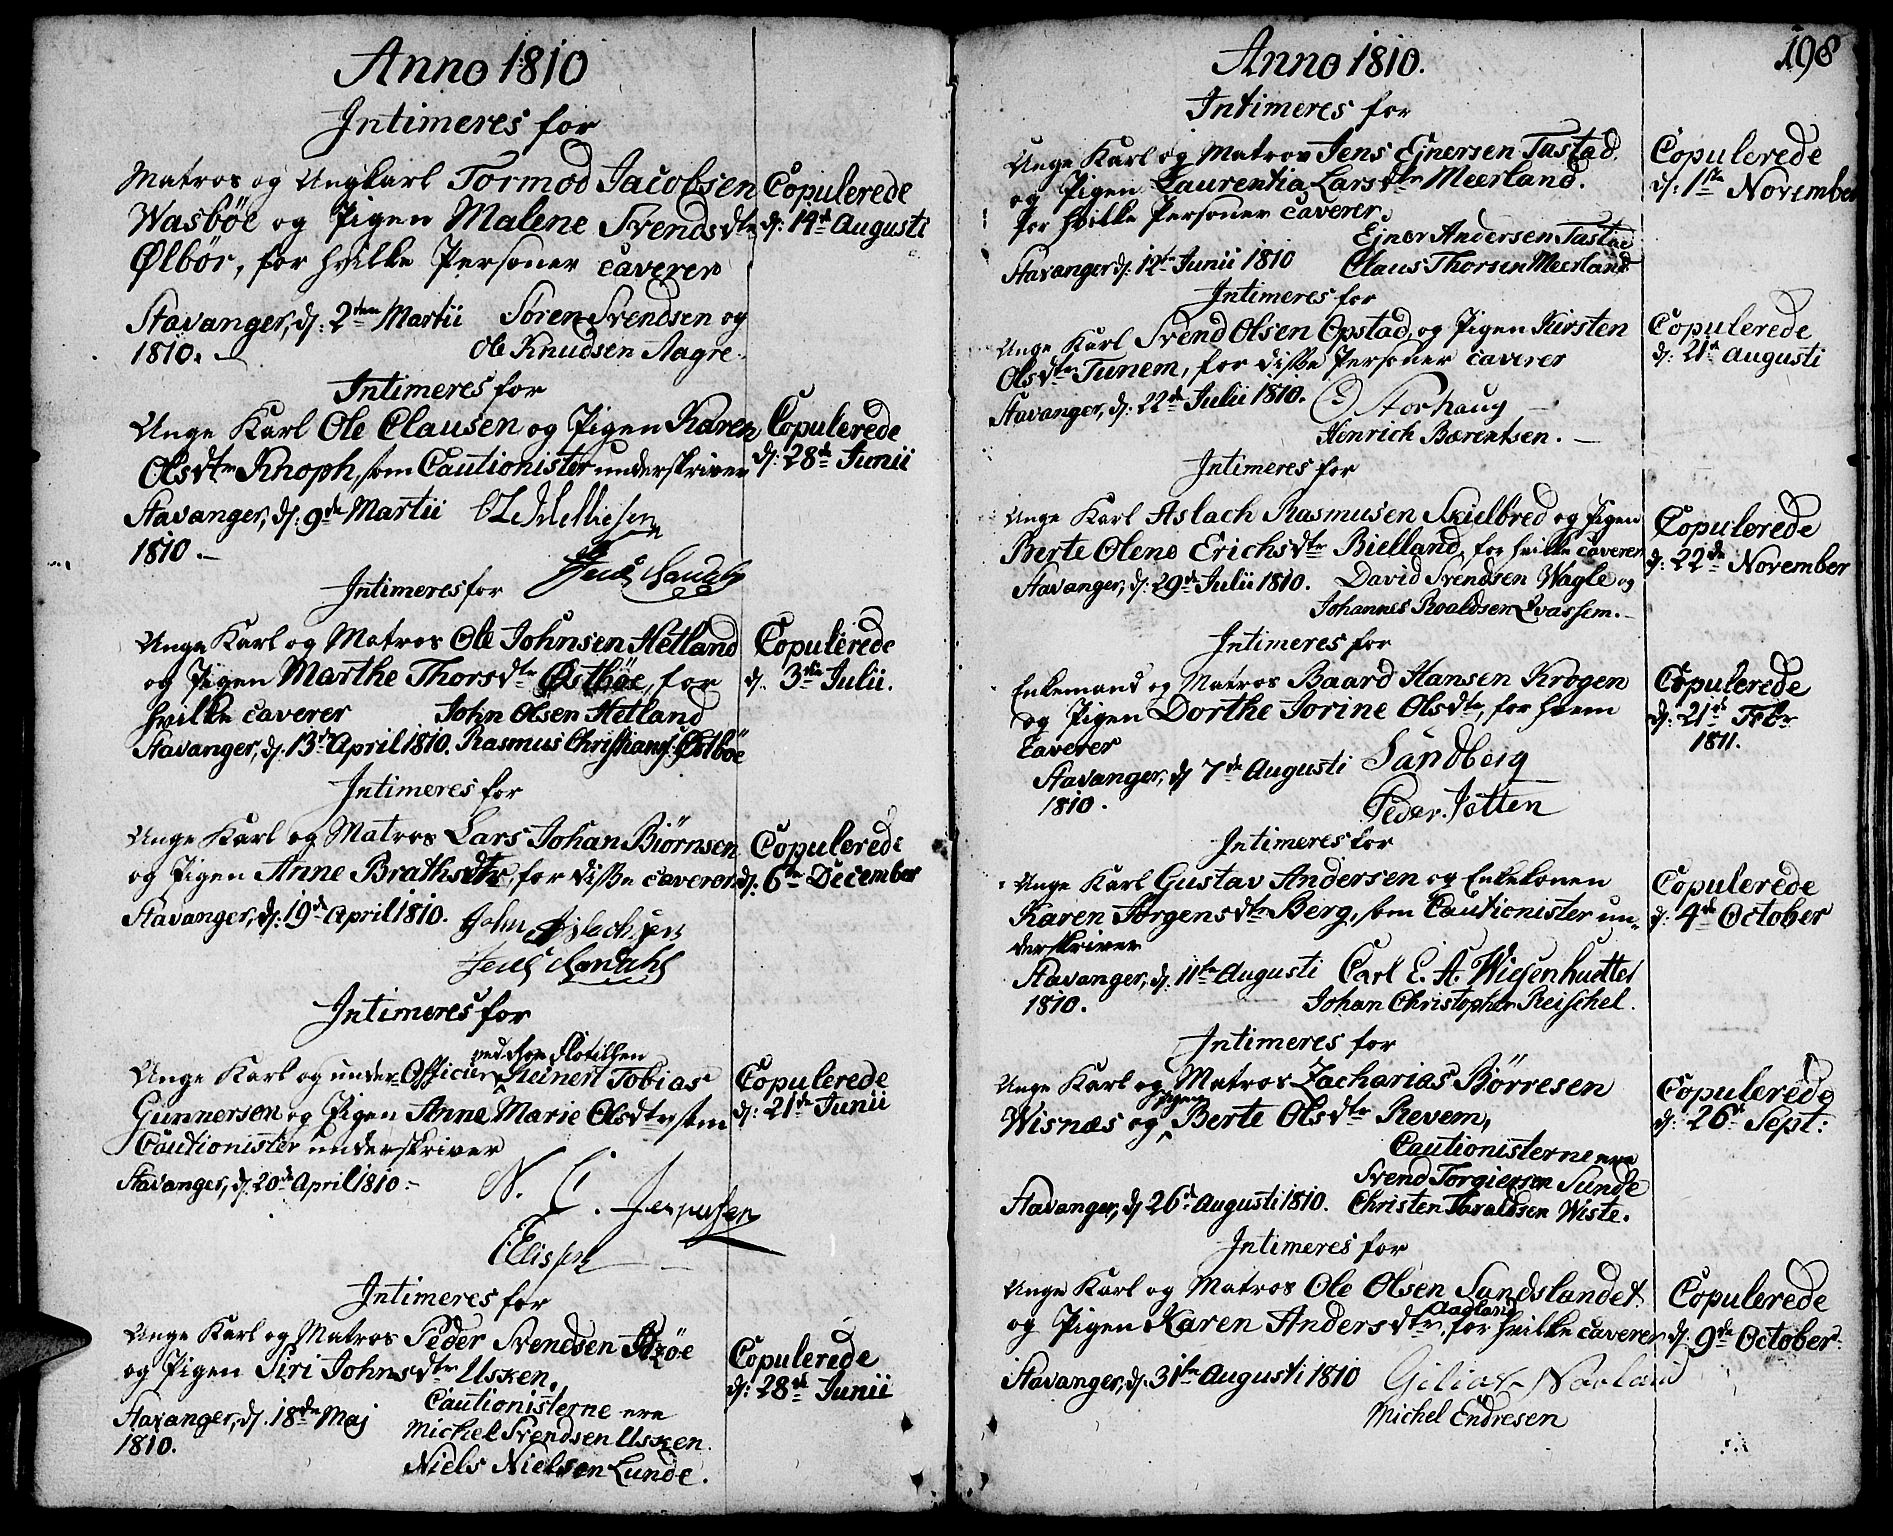 Anno 1810
Intimeres for
Matros og Ungkarl Tormod Jacobsen
Wasböe og Pigen Malene Svendsdtr
Ølbör, for hvilke Personer caverer
Stavanger, d: 2den Martii Sören Svendsen og
1810. Ole Knudsen Aagre.
Copulerede
d: 14d Augusti
Intimeres for
Unge Karl Ole Clausen og Pigen Karen
Olsdtr Knoph, som Cautionister underskriver
Stavanger, d: 9de Martii
1810.
Copulerede
d: 28de Junii
Intimeres for
Unge Karl og Matros Ole Johnsen Hetland
og Pigen Marthe Thorsdtr Østböe, for
hvilke caverer John Olsen Hetland
Stavanger, d. 13d April 1810. Rasmus Christians: Østböe
Copulerede
d. 3die Julii.
Intimeres for
Unge Karl og Matros Lars Johan Biörnsen
og Pigen Anne Brathsdtr, for disse caverer
Stavanger, d. 19de April 1810. John Aslachsen
Copulerede
d: 6te December
Intimeres for
ved Roe Flotillen
Unge Karl og under-Officier Reinert Tobias
Gunnersen og Pigen Anne Marie Olsdtr, som
Cautionister underskriver
Stavanger, d. 20de April 1810. N. C. Jespersen
Ellissen
Copulerede
d: 21de Junii
Intimeres for
Unge Karl og Matros Peder Svendsen
og Pigen Siri Johnsdtr Usken.
Stavanger, d. 18de Maj Cautionisterne ere
1810. Michel Svendsen Usken.
Niels Nielsen Lunde.
Copulerede
d: 28de Junii
198
Anno 1810.
Intimeres for
Unge Karl og Matros Jens Ejnersen Tastad
og Pigen Laurentia Larsdtr Meerland.
for hvilke Personer caverer
Ejner Andersen Tastad
Stavanger d: 12te Junii 1810 Claus Thorsen Meerland
Copulerede
d: 1ste November
Intimeres for
Unge Karl Svend Olsen Opstad, og Pigen Kirsten
Olsdtr Tunem, for disse Personer caverer
Stavanger, d: 22de Julii 1810. Storhaug
Henrich Bærentsen.
Copulerede
d: 21d Augusti
Intimeres for
Unge Karl Aslach Rasmusen Skielbred og Pigen
Berte Olene Erichsdtr Bielland, for hvilke caverer
Stavanger, d: 29de Julii 1810. David Svendsen Wagle og
Johannes Roaldsen Qvassem.
Copulerede
d: 22de November
Intimeres for
Enkemand og Matros Baard Hansen Krogen
og Pigen Dorthe Jorine Olsdtr, for hvem
Caverer
Stavanger, d 7de Augusti Sandberg
1810. Peder Jötten
Copulerede
d: 21d Febr
1811.
Intimeres for
Unge Karl Gustav Andersen og Enkekonen
Karen Jörgensdtr Berg, som Cautionister un-
derskriver
Stavanger, d. 11te Augusti Carl E. A. Wiesenhudtel
1810. Johan Christopher Reischel.
Copulerede
d: 4de October
Intimeres for
Unge Karl og Matros Zacharias Börresen
Wisnæs og Pigen Berte Olsdtr Revem,
Cautionisterne ere
Svend Torgiersen Sunde
Stavanger, d 26d Augusti 1810. Christen Tharaldsen Wiste.
Copulerede
d: 26d Sept:
Intimeres for
Unge Karl og Matros Ole Olsen Sandslandet
og Pigen Karen Andersdtr Aadland, for hvilke caverer
Stavanger, d. 31te Augusti 1810
Michel Endresen
Copulerede
d: 9de October.